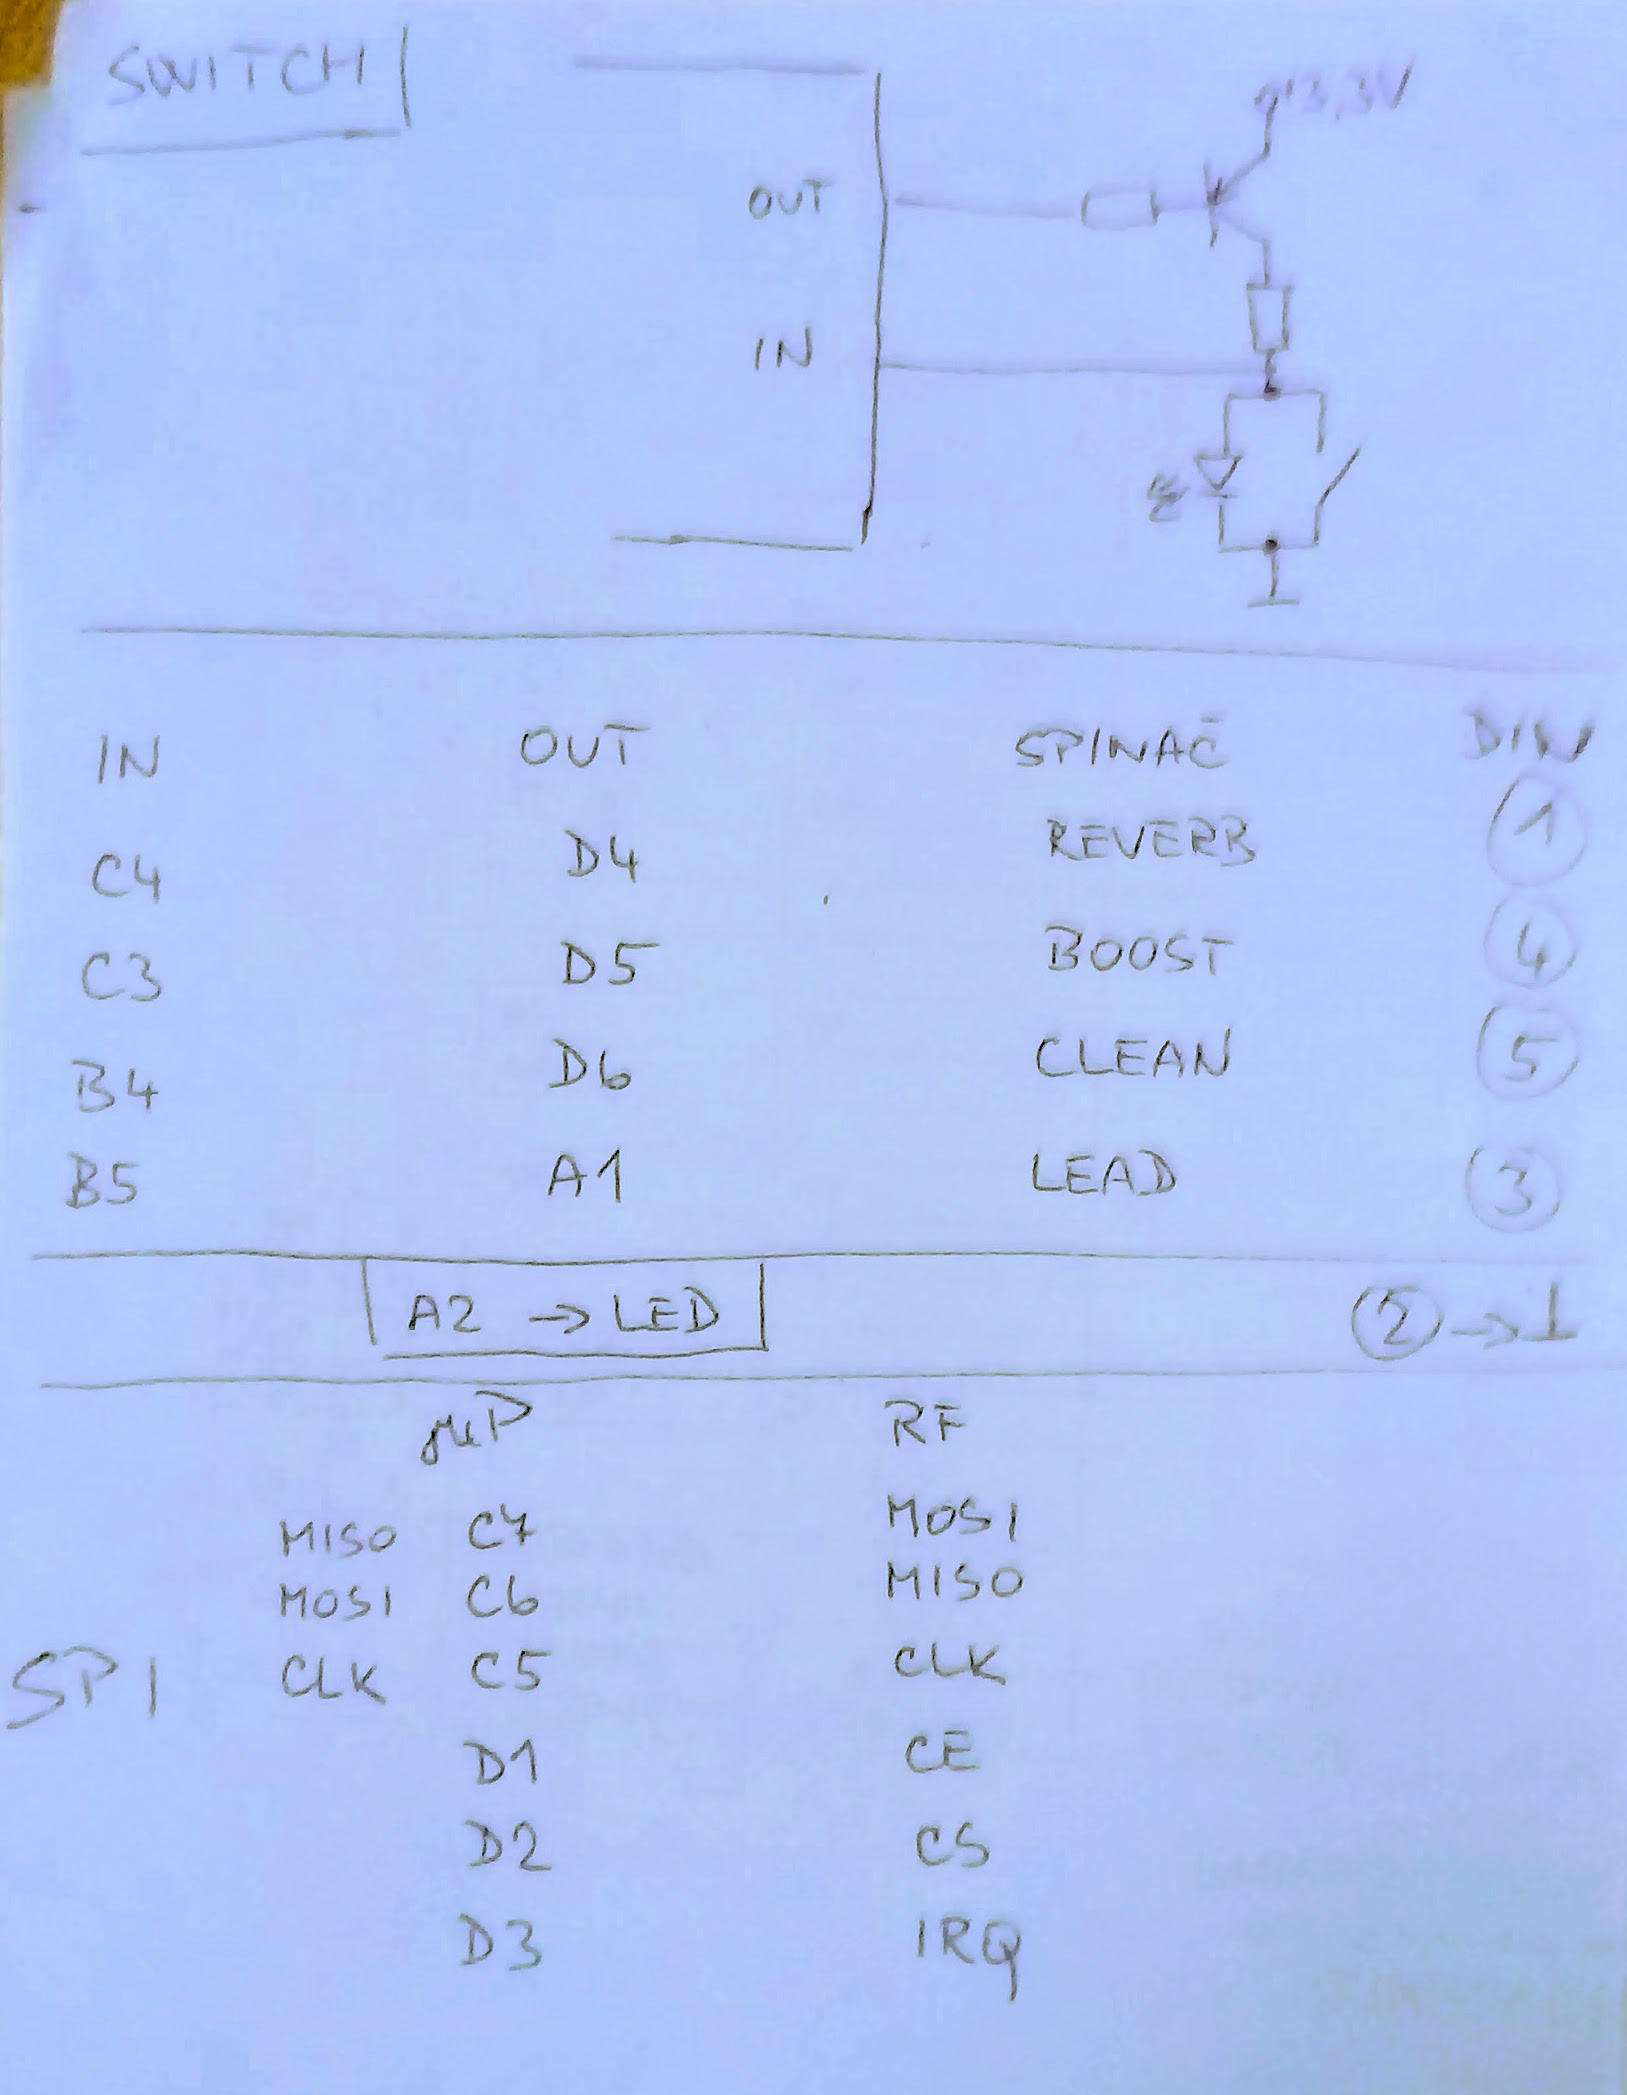 SWITCH
+3,3V
OUT
IN
IN OUT SPINAČ DIN
C4 D4 REVERB 1
C3 D5 BOOST 4
B4 D6 CLEAN 5
B5 A1 LEAD 3
A2 → LED 2 →
μP RF
MISO C7 MOSI
MOSI C6 MISO
SPI CLK C5 CLK
D1 CE
D2 CS
D3 IRQ